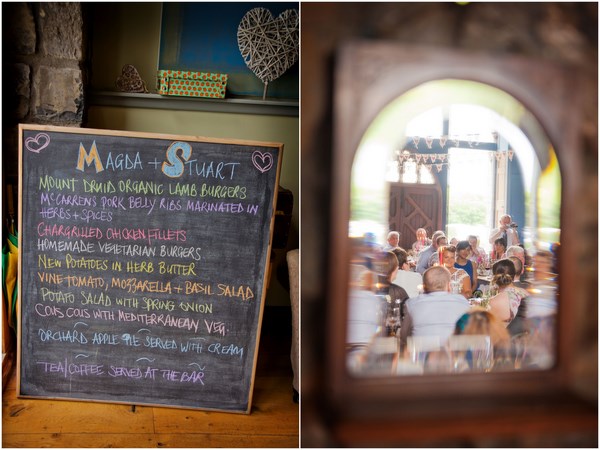 MAGDA + STUART
MOUNT DRUID ORGANIC LAMB BURGERS
MCCARREN'S PORK BELLY RIBS MARINATED IN
HERBS + SPICES
CHARGRILLED CHICKEN FILLETS
HOMEMADE VEGETARIAN BURGERS
NEW POTATOES IN HERB BUTTER
VINE TOMATO, MOZZARELLA + BASIL SALAD
POTATO SALAD WITH SPRING ONION
COUS COUS WITH MEDITERRANEAN VEG.
ORCHARD APPLE PIE SERVED WITH CREAM
TEA/COFFEE SERVED AT THE BAR